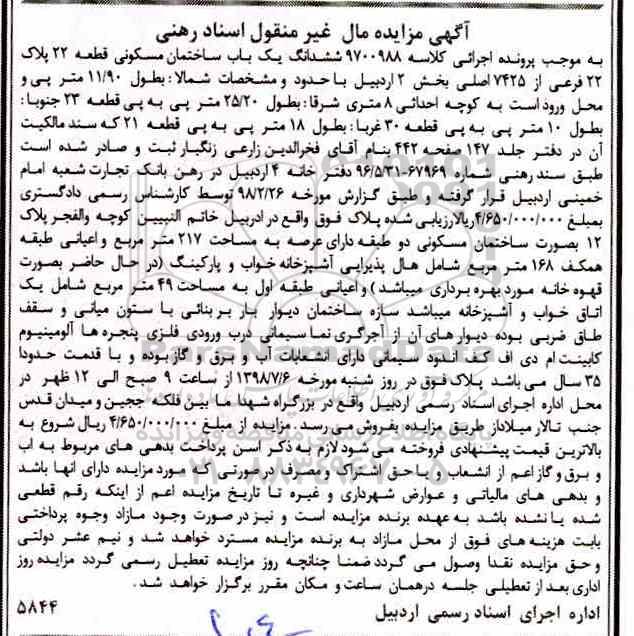 آگهی مزایده مال غیر منقول اسناد رهنی
به موجب پرونده اجرائی کلاسه ۹۷۰۰۹۸۸ ششدانگ یک باب ساختمان مسکونی قطعه ۲۲ پلاک
۲۲ فرعی از ۷۴۲۵ اصلی بخش ۲ اردبیل با حدود و مشخصات شمالا: بطول ۱۱/۹۰ متر پی و
محل ورود است به کوچه احداثی ۸ متری شرقا: بطول ۲۵/۲۰ متر پی به پی قطعه ۲۳ جنوبا:
بطول ۱۰ متر پی به پی قطعه ۳۰ غربا: بطول ۱۸ متر پی به پی قطعه ۲۱ که سند مالکیت
آن در دفتر جلد ۱۴۷ صفحه ۴۴۲ بنام آقای فخرالدین زارعی زنگیار ثبت و صادر شده است
طبق سند رهنی شماره ۶۷۹۶۹-۹۶/۵/۳۱ دفتر خانه ۴ اردبیل در رهن بانک تجارت شعبه امام
خمینی اردبیل قرار گرفته و طبق گزارش مورخه ۹۸/۲/۲۶ توسط کارشناس رسمی دادگستری
بمبلغ ۴/۶۵۰/۰۰۰/۰۰۰ریالارزیابی شده پلاک فوق واقع در ادربیل خاتم النبیین کوچه والفجر پلاک
۱۲ بصورت ساختمان مسکونی دو طبقه دارای عرصه به مساحت ۲۱۷ متر مربع و اعیانی طبقه
همکف ۱۶۸ متر مربع شامل هال پذیرایی آشپزخانه خواب و پارکینگ (در حال حاضر بصورت
قهوه خانه مورد بهره برداری میباشد) و اعیانی طبقه اول به مساحت ۴۹ متر مربع شامل یک
اتاق خواب و آشپزخانه میباشد سازه ساختمان دیوار بار بر بنائی با ستون میانی و سقف
طاق ضربی بوده دیوار های آن از آجرگری نما سیمانی درب ورودی فلزی پنجره ها آلومینیوم
کابینت ام دی اف کف اندود سیمانی دارای انشعابات آب و برق و گاز بوده و با قدمت حدودا
۳۵ سال می باشد پلاک فوق در روز شنبه مورخه ۱۳۹۸/۷/۶ از ساعت ۹ صبح الی ۱۲ ظهر در
محل اداره اجرای اسناد رسمی اردبیل واقع در بزرگراه شهدا ما بین فلکه ججین و میدان قدس
جنب تالار میلاداز طریق مزایده بفروش می رسد. مزایده از مبلغ ۴/۶۵۰/۰۰۰/۰۰۰ ریال شروع به
بالاترین قیمت پیشنهادی فروخته می شود لازم به ذکر است پرداخت بدهی های مربوط به اب
و برق و گاز اعم از انشعاب و یا حق اشتراک و مصرف درصورتی که مورد مزایده دارای انها باشد
و بدهی های مالیاتی و عوارض شهرداری و غیره تا تاریخ مزایده اعم از اینکه رقم قطعی
شده یا نشده باشد به عهده برنده مزایده است و نیز در صورت وجود مازاد وجوه پرداختی
بابت هزینه های فوق از محل مازاد به برنده مزایده مسترد خواهد شد و نیم عشر دولتی
و حق مزایده نقدا وصول می گردد ضمنا چنانچه روز مزایده تعطیل رسمی گردد مزایده روز
اداری بعد از تعطیلی جلسه درهمان ساعت و مکان مقرر برگزار خواهد شد.
اداره اجرای اسناد رسمی اردبیل ۵۸۴۴